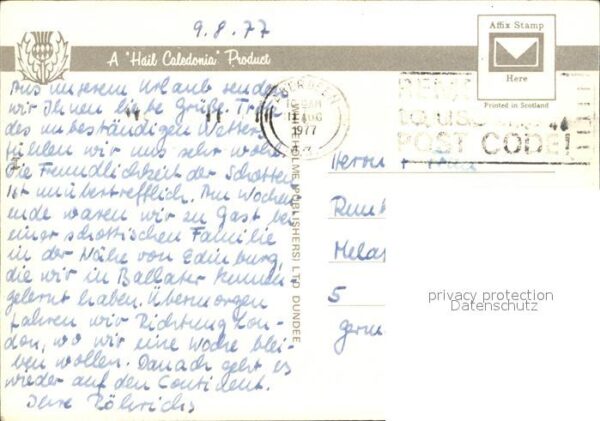 9.8.77
A "Hail Caledonia" Product
Affix Stamp
Here
Printed in Scotland
Aus unserem Urlaub senden
wir Ihnen liebe Grüße. Trotz
des unbeständigen Wetters
fühlen wir uns sehr wohl.
Die Freundlichkeit der Schotten
ist unübertrefflich. Am Wochen-
ende waren wir zu Gast bei
einer schottischen Familie
in der Nähe von Edinburg,
die wir in Ballater kennen-
gelernt haben. Übermorgen
fahren wir Richtung Lon-
don, wo wir eine Woche blei-
ben wollen. Danach geht es
wieder auf den Continent.
Ihre Röhrichs
ABERDEEN
AUG
1977
POST CODE
PUBLISHERS) LTD DUNDEE
Herrn + Frau
5
privacy protection
Datenschutz